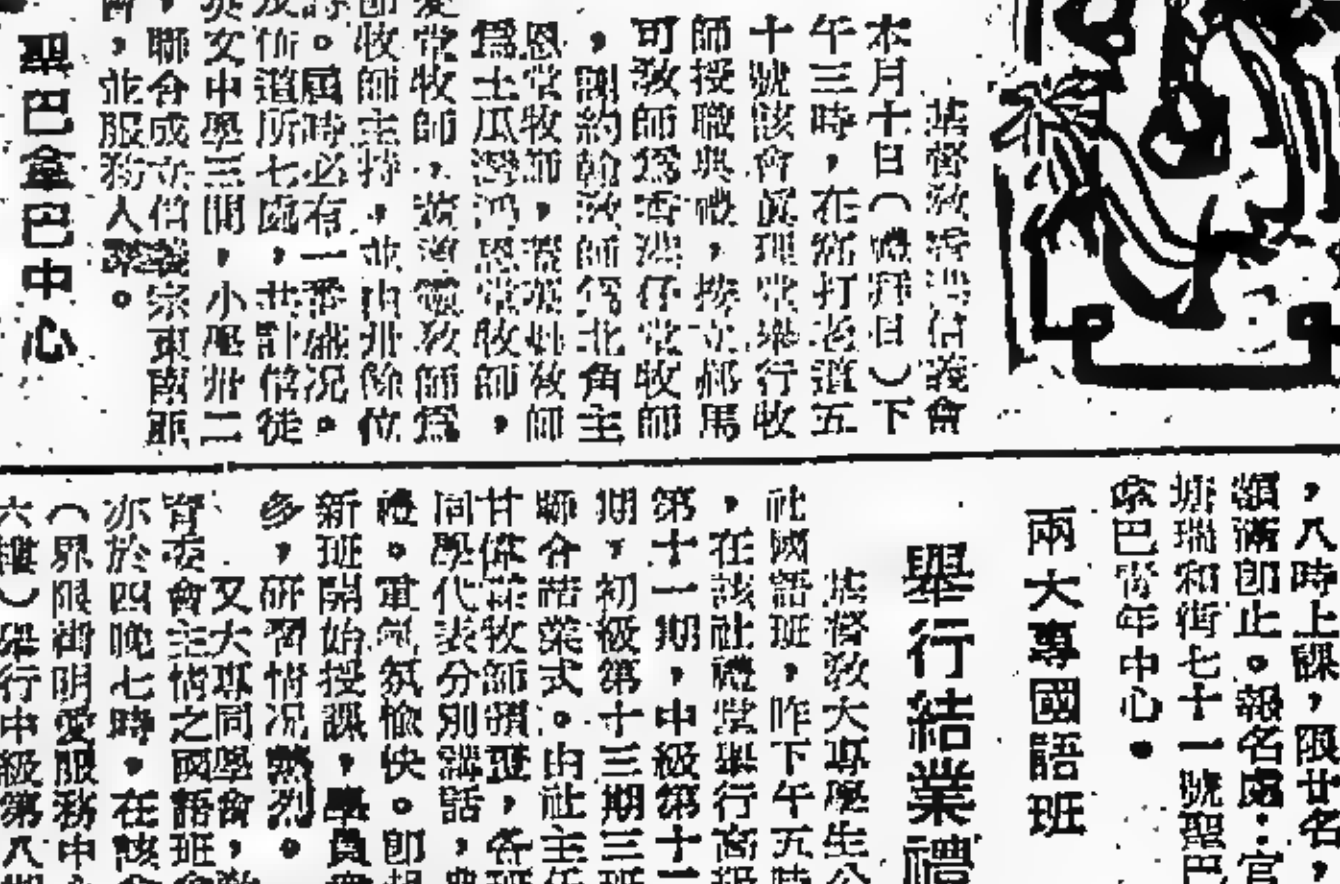 基督教香港信義會
本月十日（禮拜日）下
午三時，在窩打老道五
十號該會眞理堂舉行收
師授職典禮，按立郝馬
可敎師爲香港仔堂牧師
，約翰敎師爲北角主
恩堂牧師，敎師
爲土瓜灣鴻恩堂牧師，
愛堂牧師，敎師爲
牧師主持，並由卅餘位
。屆時必有一番盛况。
及佈道所七處，共計信徒
英女中學三間，小學卅二
，聯合成立信義宗東南
，並服務人羣。
聖巴拿巴中心
，八時上課，限廿名，
額滿卽止。報名處：官
塘瑞和街七十一號聖巴
拿巴靑年中心。
兩大專國語班
舉行結業禮
基督敎大專學生公
社國語班，昨下午五時
，在該社禮堂舉行高級
第十一期，中級第十二
期，初級第十三期三班
聯合結業式。由社主任
甘偉牧師頒，各班
同學代表分別講話，典
禮。氣氛愉快。卽
新班開始授課，學員衆
多，研習情况熱烈。
又大專同學會，
靑委會主辦之國語班
亦於四晚七時，在該
（界限街明愛服務中心
六樓）舉行中級第八期